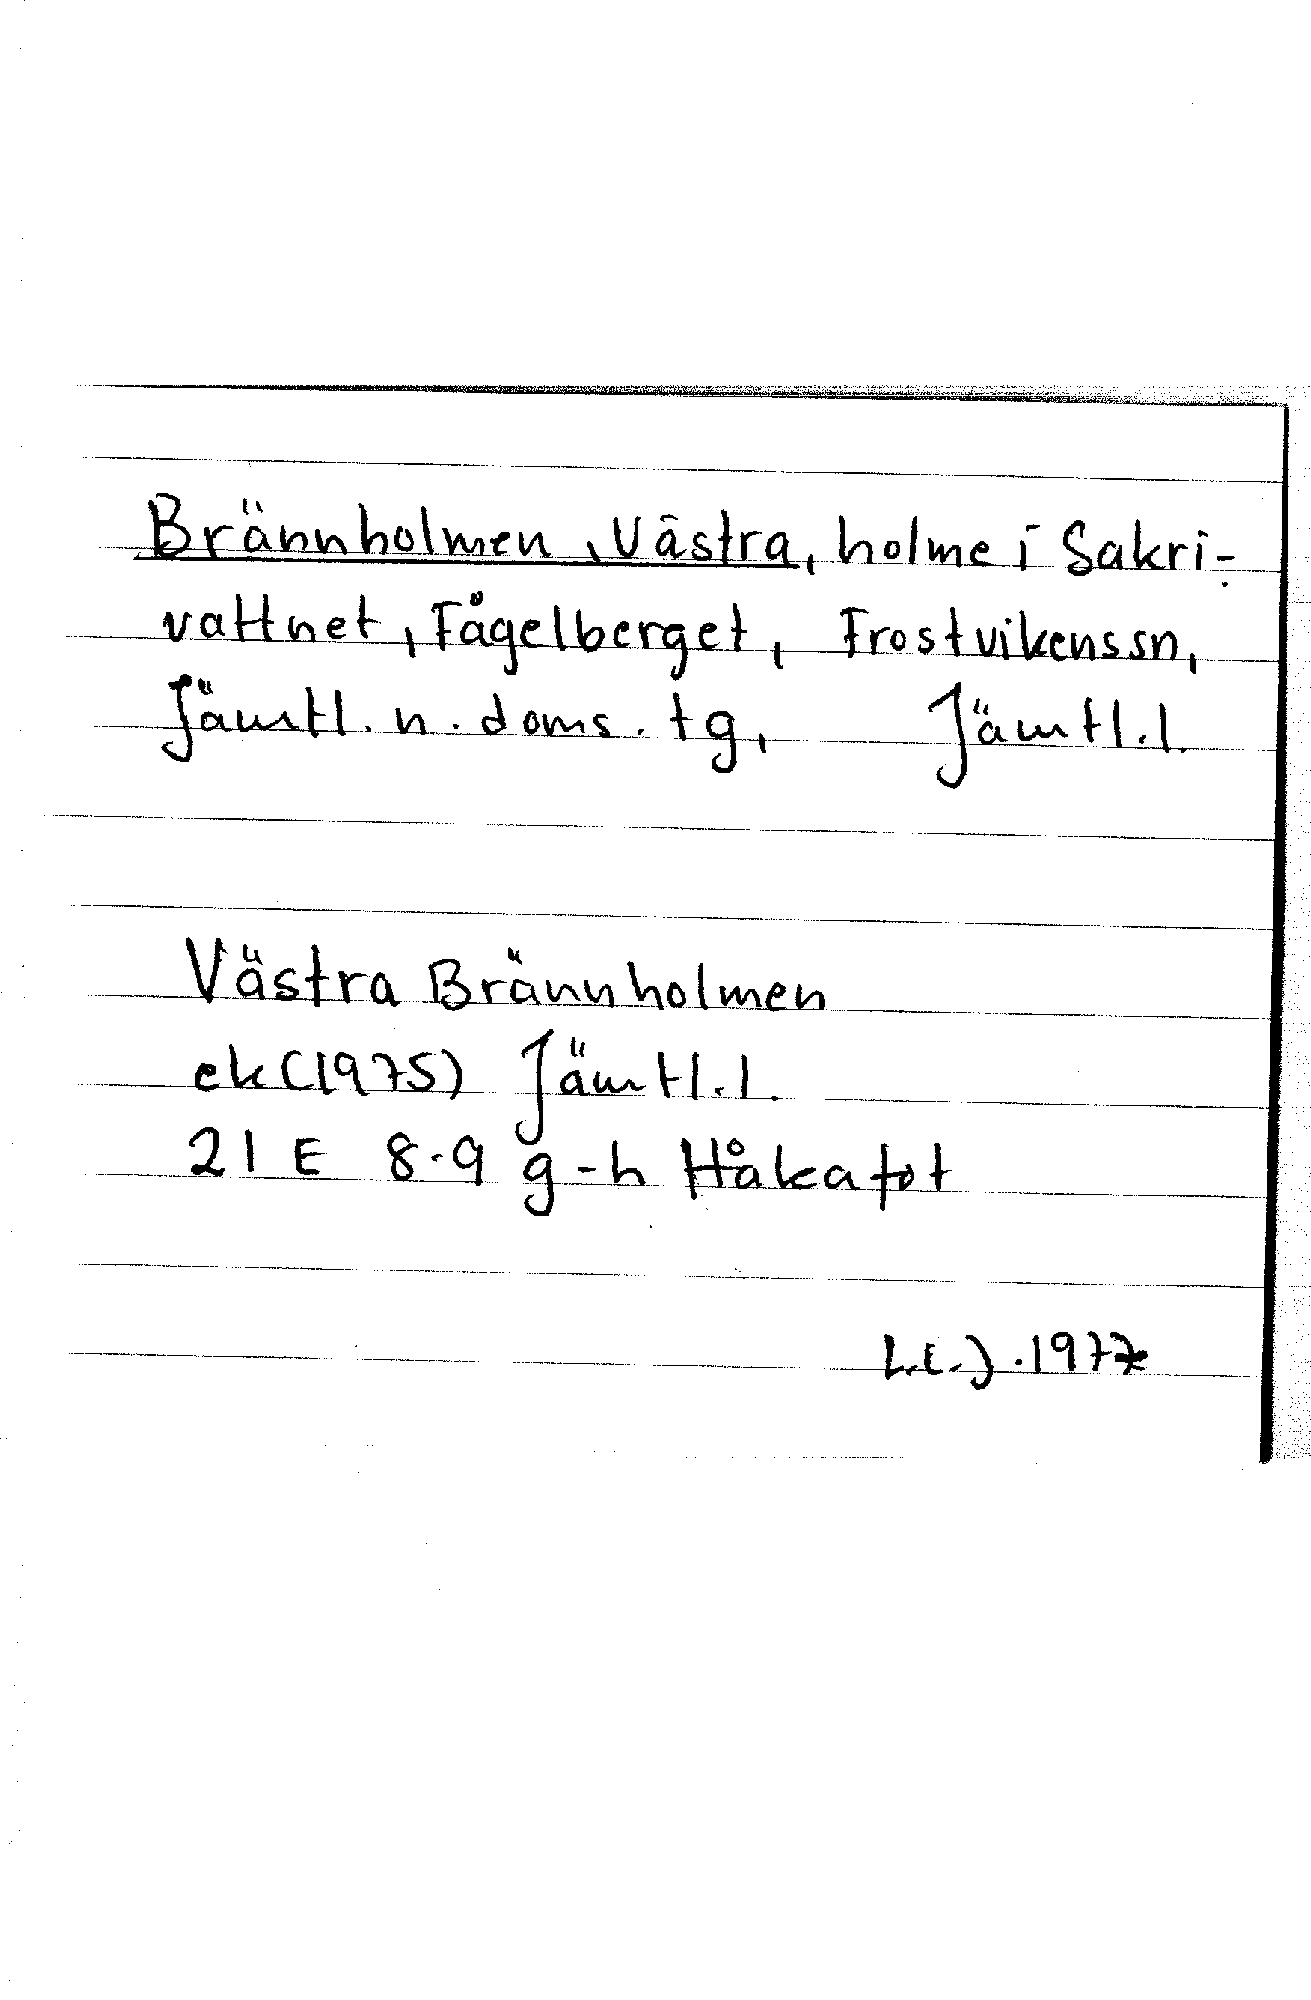 Brännholmen, Västra, holme i Sakri-
vattnet, Fågelberget, Frostvikens sn,
Jämtl. n. doms. tg, Jämtl. l.
Västra Brännholmen
ek (1975) Jämtl. l.
21 E 8-9 g-h Håkafot
1977